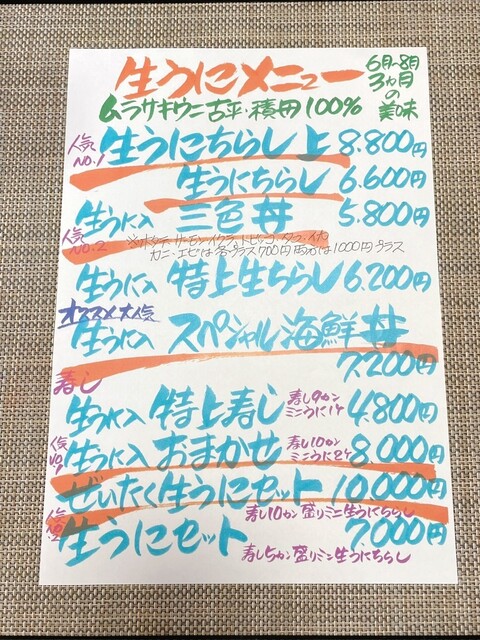 生うにメニュー
6月~8月
3ヶ月
の
美味
ムラサキウニ 古平・積丹 100%
人気
NO.1
生うにちらし 上 8.800円
生うにちらし 6.600円
生うに入 三色丼 5.800円
人気
NO.2
※ホタテ・サーモン・イクラ・トビッコ・タコ・イカ
カニ・エビは各プラス700円 両方は1000円プラス
生うに入 特上生ちらし 6.200円
オススメ 大人気
生うに入 スペシャル海鮮丼
7.200円
寿し
生うに入 特上寿し 寿し9カン
ミニうに1ケ 4.800円
人気
NO.1
生うに入 おまかせ 寿し10カン
ミニうに2ケ 8.000円
ぜいたく生うにセット 10.000円
寿し10カン 盛りミニ生うにちらし
人気
NO.2
生うにセット 7.000円
寿し5カン盛りミニ生うにちらし